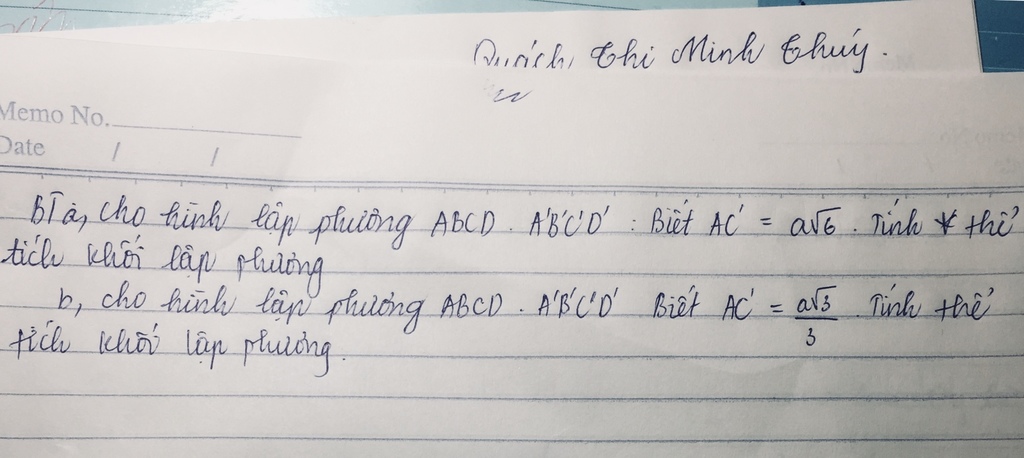 Quách Thi Minh Thúy.
Memo No.
Date / /
BT a, cho hình lập phương ABCD . A'B'C'D' : Biết AC' = a√6 . Tính thể
tích khối lập phương
b, cho hình lập phương ABCD . A'B'C'D' Biết AC' = a√3/3 . Tính thể
tích khối lập phương.